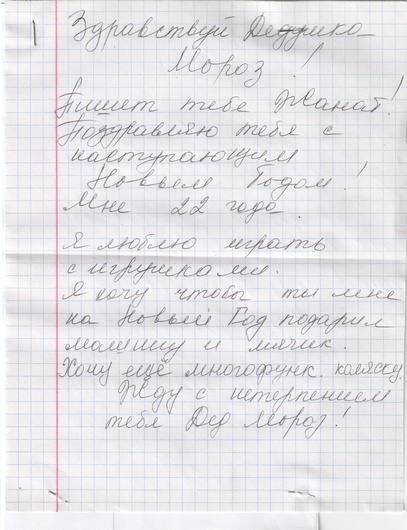 1
Здравствуй Дедушка
Мороз!
Пишет тебе Жанат!
Поздравляю тебя с
наступающим
Новым Годом!
Мне 22 года.
Я люблю играть
с игрушками.
Я хочу чтобы ты мне
на Новый Год подарил
машину и мячик.
Хочу ещё многофунк. коляску.
Жду с нетерпением
тебя Дед Мороз!